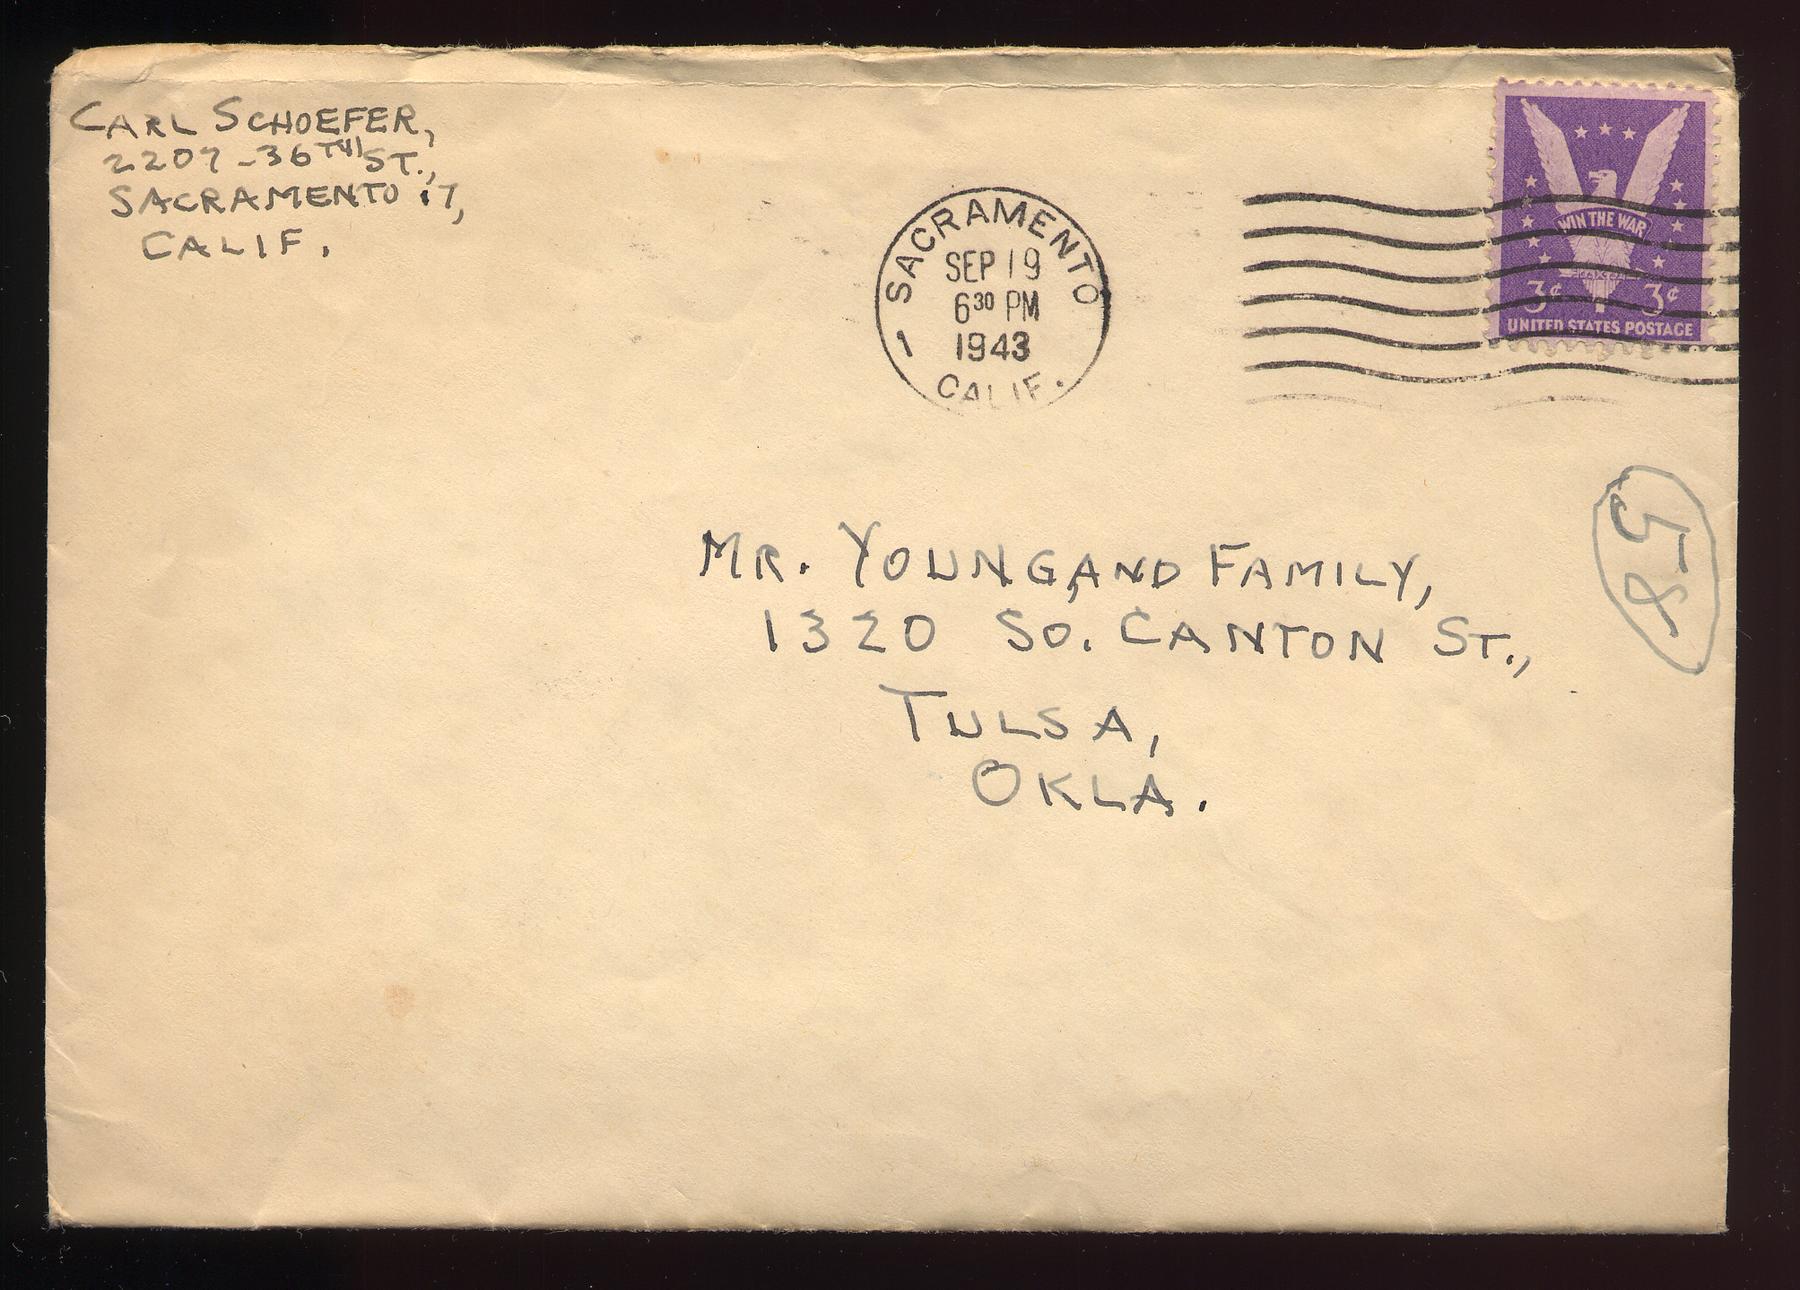 CARL SCHOEFER,
2207-36TH ST.,
SACRAMENTO 17,
CALIF.
SACRAMENTO
SEP 19
6 30 PM
1943
1
CALIF.
WIN THE WAR
3¢ 3¢
UNITED STATES POSTAGE
58
MR. YOUNG, AND FAMILY,
1320 SO. CANTON ST.,
TULSA,
OKLA.